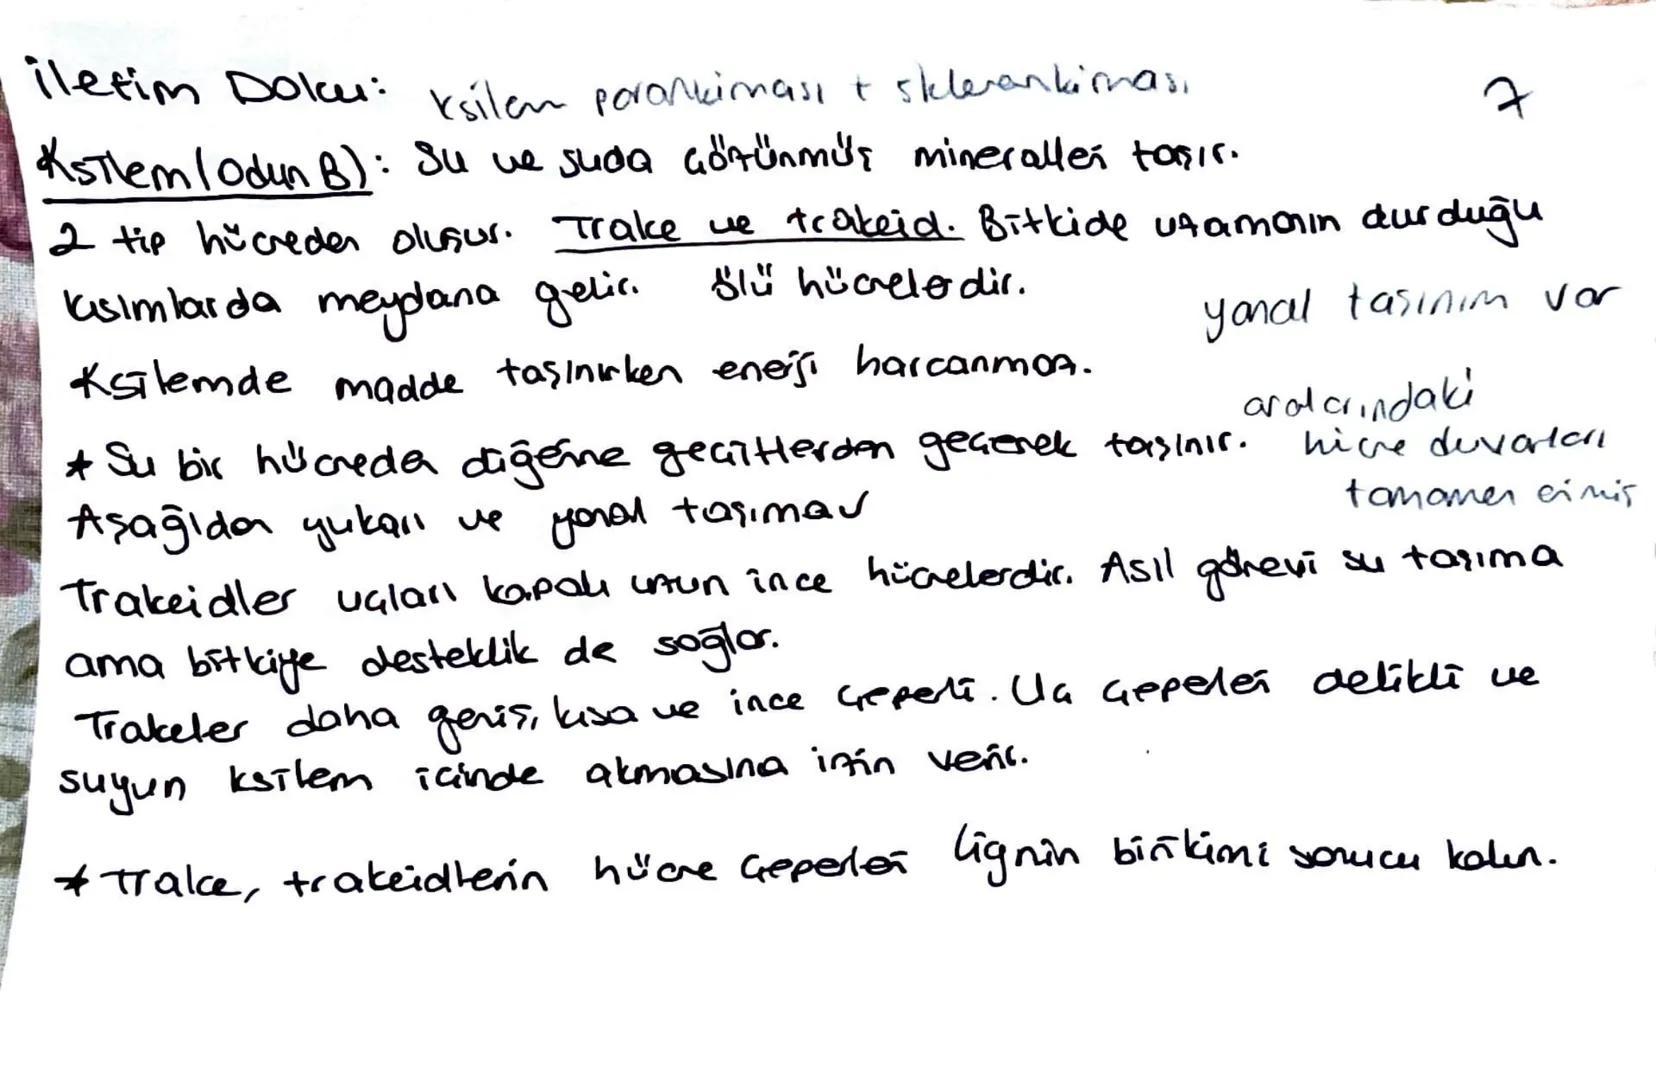 İletim Doku: ksilem parankiması + sklerankiması
7
Ksilem (odun B): Su ve suda çözünmüş mineralleri taşır.
2 tip hücreden oluşur. Trake ve trakeid. Bitkide uzamanın durduğu
kısımlarda meydana gelir. Ölü hücrelerdir.
yanal taşınım var
Ksilemde madde taşınırken enerji harcanmaz.
aralarındaki
hücre duvarları
tamamen erimiş
* Su bir hücreden diğerine geçitlerden geçerek taşınır.
Aşağıdan yukarı ve yanal taşıma
Trakeidler uçları kapalı uzun ince hücrelerdir. Asıl görevi su taşıma
ama bitkiye desteklik de sağlar.
Trakeler daha geniş, kısa ve ince çeperli. Uç çeperleri delikli ve
suyun ksilem içinde akmasına izin verir.
* Trake, trakeidlerin hücre çeperleri lignin birikimi sonucu kalın.